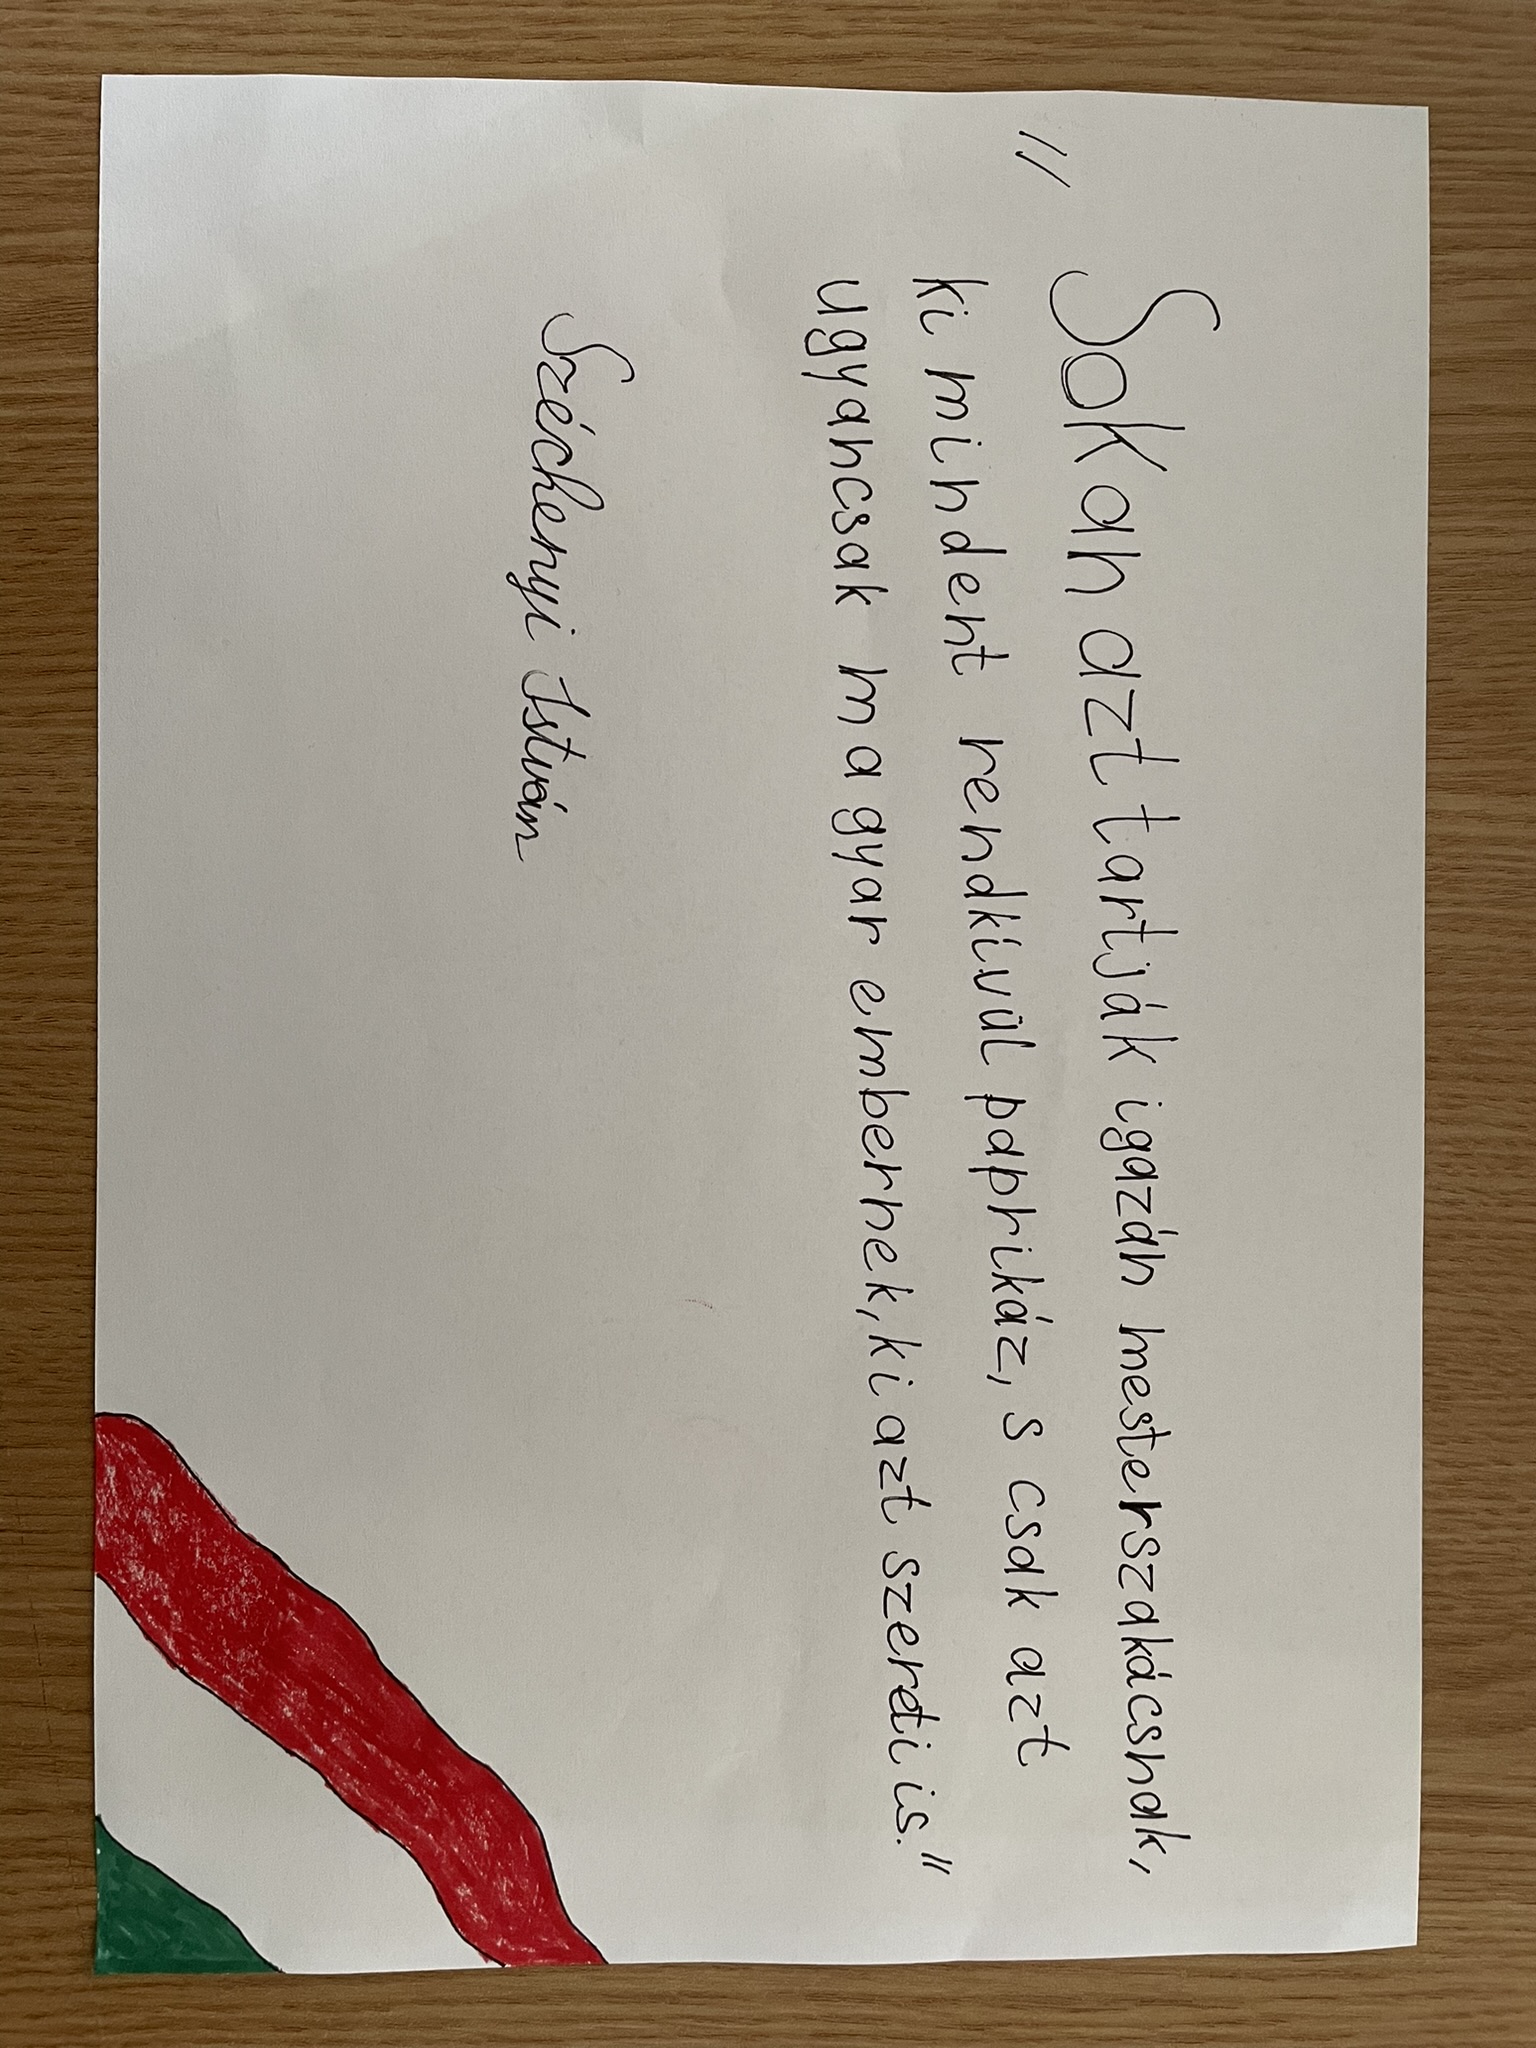 „Sokan azt tartják igazán mesterszakácsnak,
ki mindent rendkívül paprikáz, s csak azt
ugyancsak magyar embernek, ki azt szereti is."
Széchenyi István